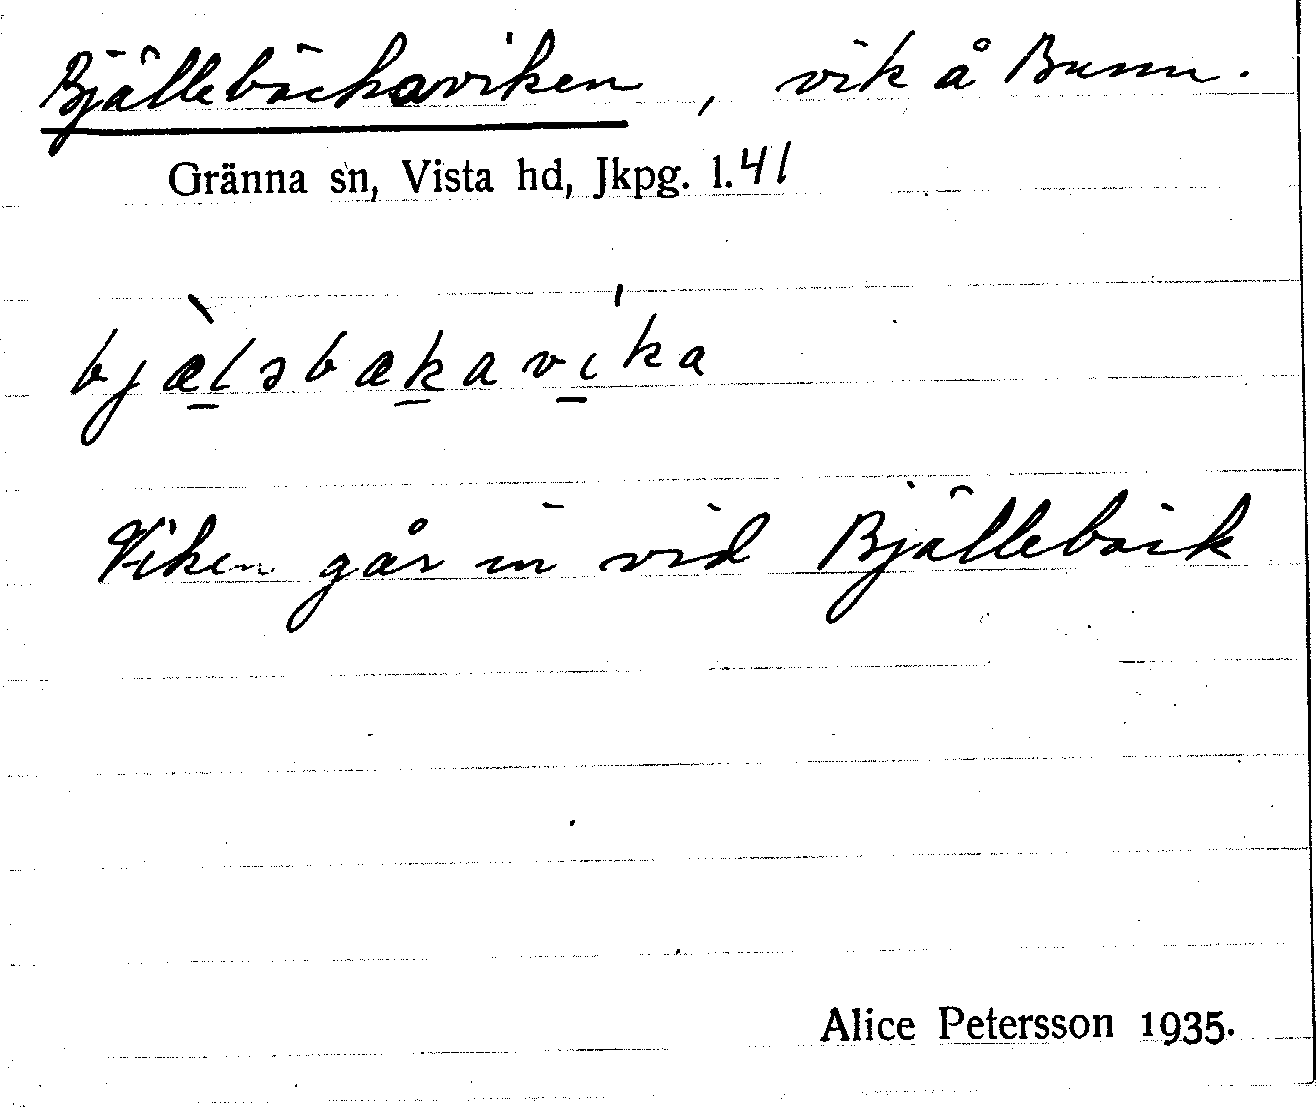 Bjällebäckaviken, vik å Bunn.
Gränna sn, Vista hd, Jkpg. l. 41
bjælsbækavika
Viken går in vid Bjällebäck
Alice Petersson 1935.